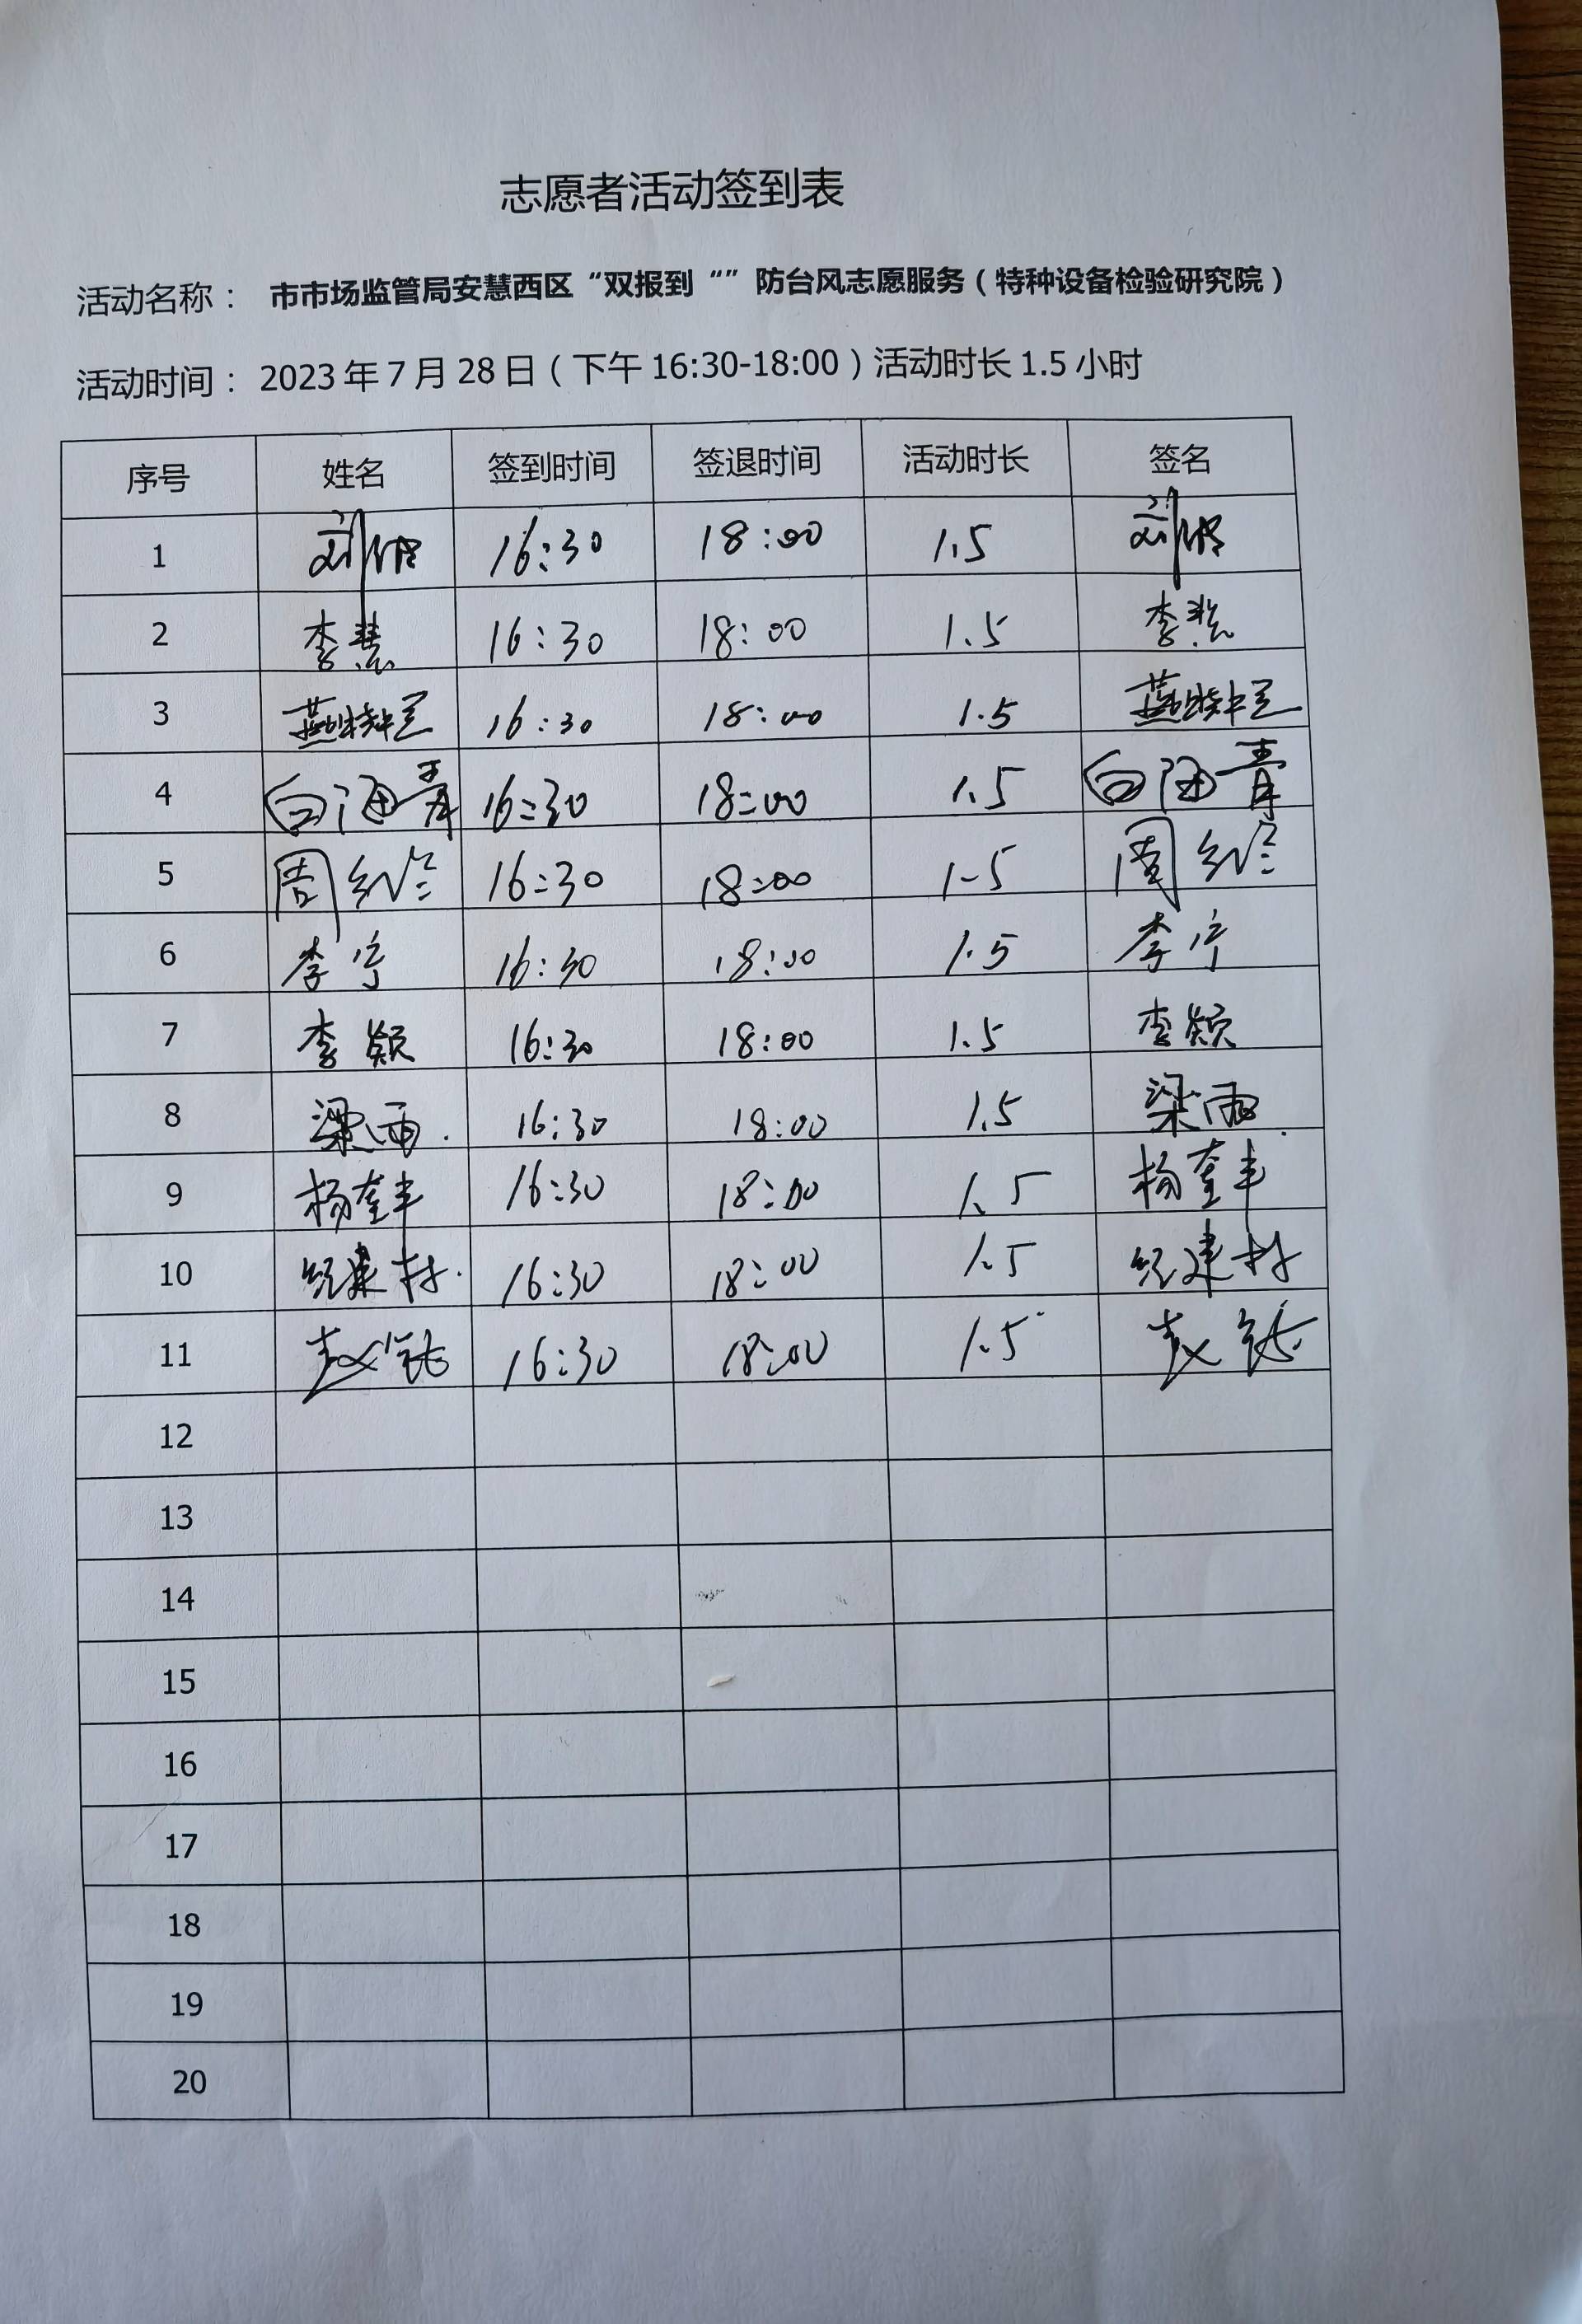 志愿者活动签到表
活动名称： 市市场监管局安慧西区“双报到“”防台风志愿服务（特种设备检验研究院）
活动时间： 2023年7月28日（下午16:30-18:00）活动时长1.5小时
序号 姓名 签到时间 签退时间 活动时长 签名
1 刘 16:30 18:00 1.5 刘
2 李慧 16:30 18:00 1.5 李慧
3 燕 16:30 18:00 1.5 燕
4 白海青 16:30 18:00 1.5 白海青
5 周 16:30 18:00 1.5 周
6 李宁 16:30 18:00 1.5 李宁
7 李颖 16:30 18:00 1.5 李颖
8 梁雨 16:30 18:00 1.5 梁雨
9 杨奎丰 16:30 18:00 1.5 杨奎丰
10 建材 16:30 18:00 1.5 建材
11 赵 16:30 18:00 1.5 赵
12
13
14
15
16
17
18
19
20